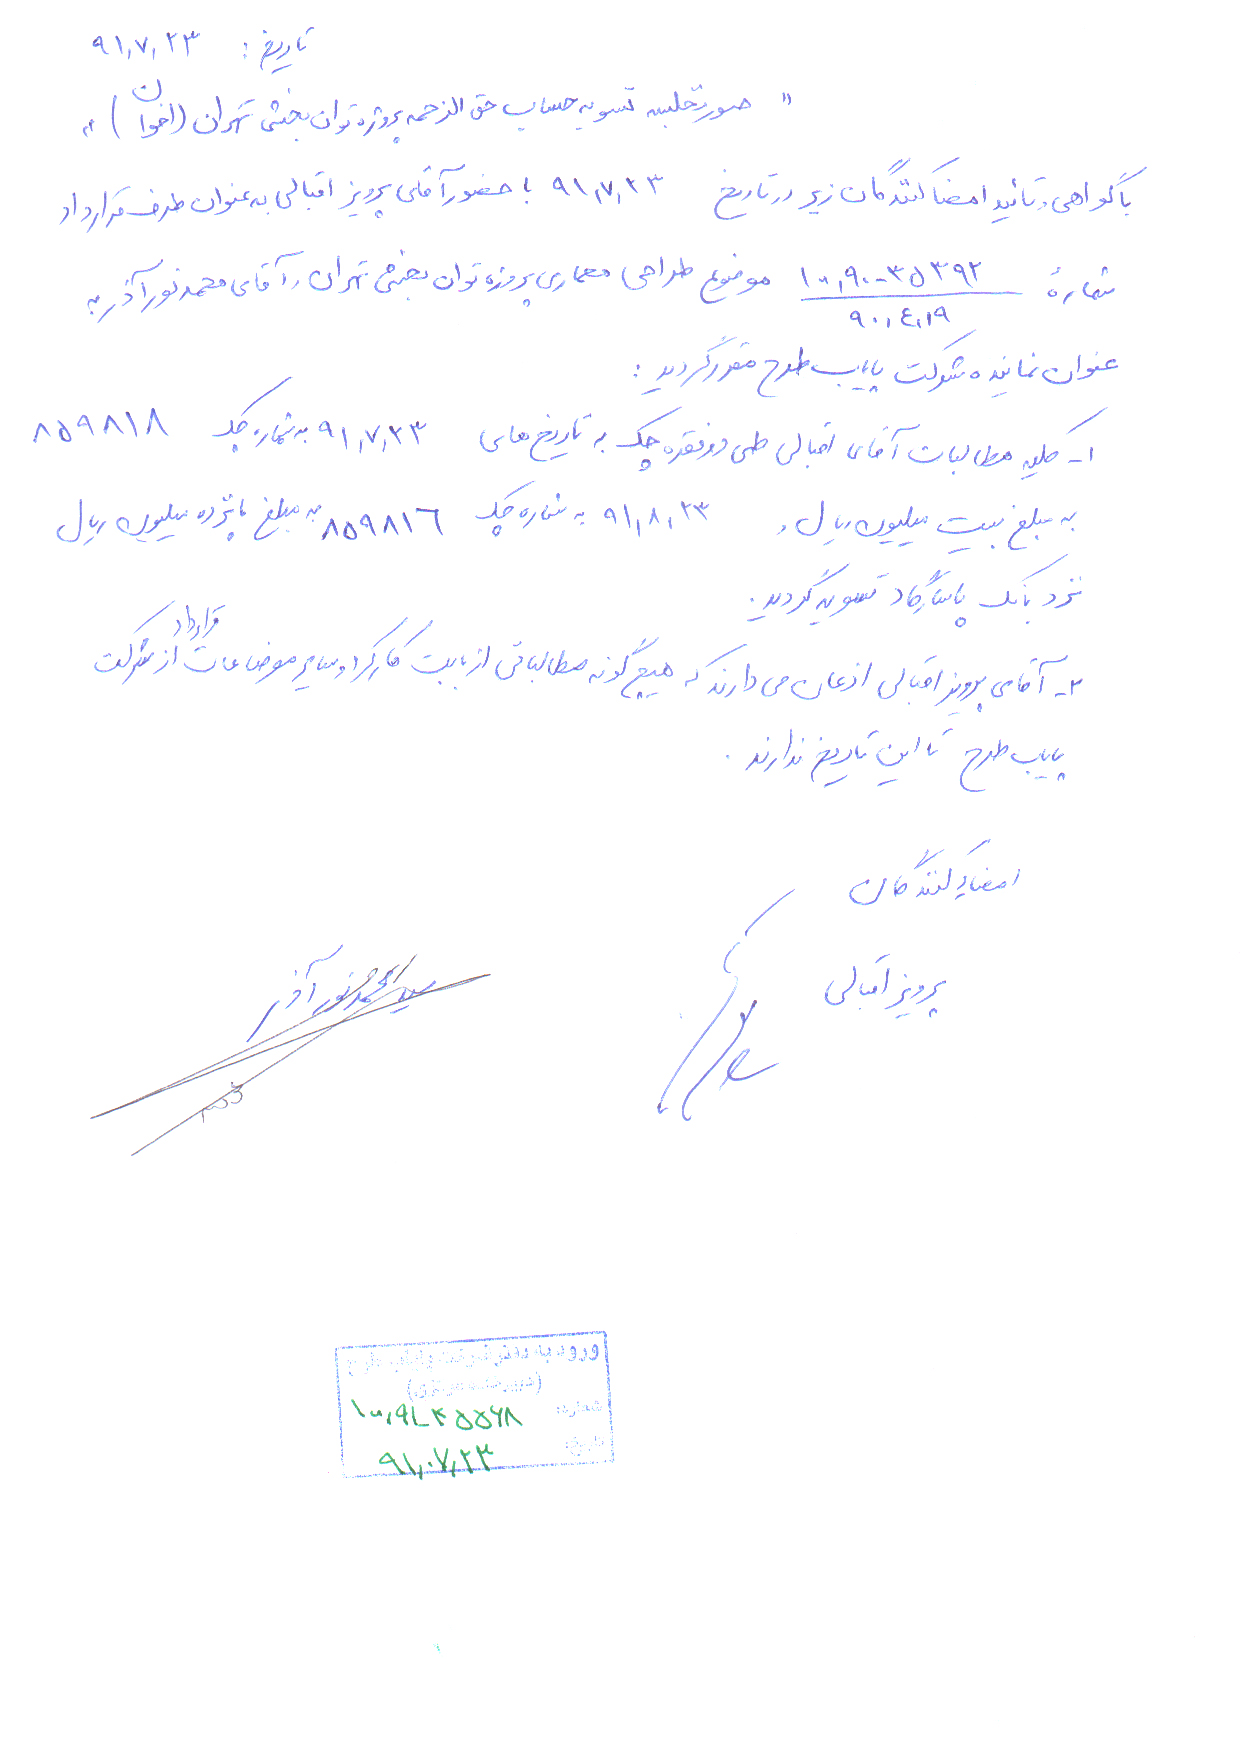 تاریخ : ۹۱,۷,۲۳
" صورتجلسه تسویه حساب حق الزحمه پروژه توان بخشی تهران (اخوان) "
با گواهی و تائید امضا کنندگان زیر در تاریخ ۹۱,۷,۲۳ با حضور آقای پرویز اقبالی به عنوان طرف قرارداد
شماره ۱۰۰,۹۰-۳۵۳۹۲ موضوع طراحی معماری پروژه توان بخشی تهران و آقای محمد نورآذر به
۹۰,۴,۱۹
عنوان نماینده شرکت پایاب طرح مقرر گردید :
۱- کلیه مطالبات آقای اقبالی طی دو فقره چک به تاریخ های ۹۱,۷,۲۳ به شماره چک ۸۵۹۸۱۸
به مبلغ بیست میلیون ریال و ۹۱,۸,۲۳ به شماره چک ۸۵۹۸۱۶ به مبلغ پانزده میلیون ریال
نزد بانک پاسارگاد تسویه گردید.
۲- آقای پرویز اقبالی اذعان می دارند که هیچ گونه مطالباتی از بابت کارکرد و سایر موضوعات قرارداد از شرکت
پایاب طرح تا این تاریخ ندارند .
امضاء کنندگان
پرویز اقبالی
سید محمد نورآذر
ورود به دفتر شرکت پایاب طرح
(دبیرخانه مرکزی)
شماره:
تاریخ: ۹۱,۰۷,۲۳